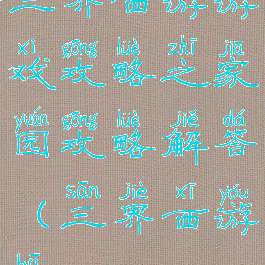 三界西游游
xì gōng lüè zhī jiā
戏攻略之家
yuán gōng lüè jiě dá
园攻略解答
sān jiè xī yóu
（三界西游